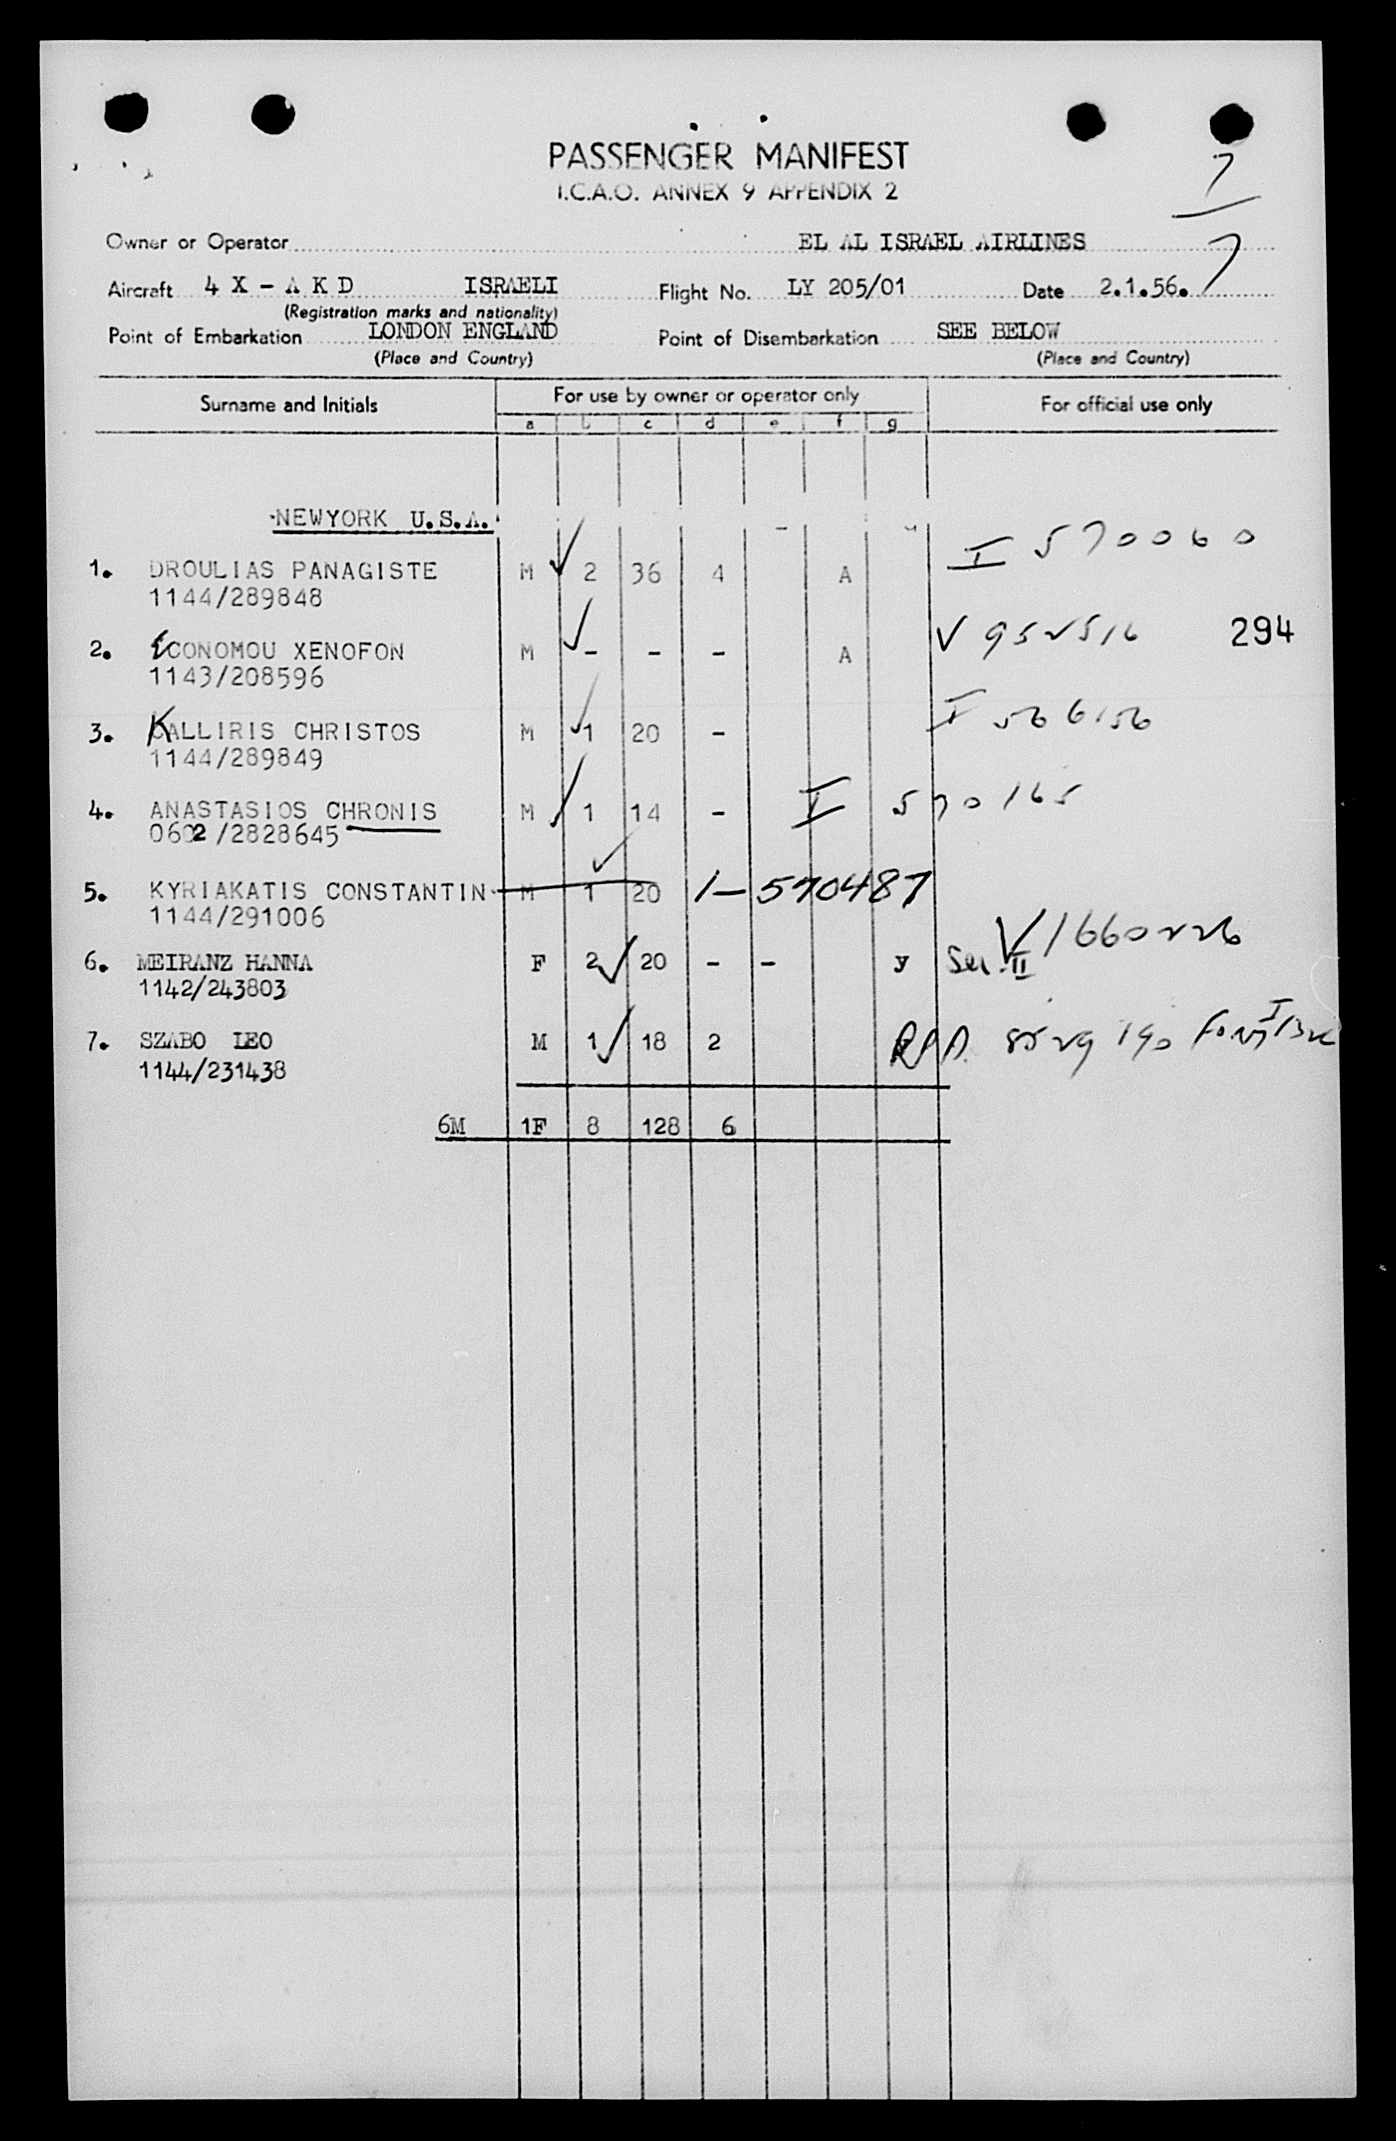 PASSENGER MANIFEST
I.C.A.O. ANNEX 9 APPENDIX 2
7
Owner or Operator EL AL ISRAEL AIRLINES
7
Aircraft 4 X - A K D ISRAELI Flight No. LY 205/01 Date 2.1.56.
(Registration marks and nationality)
Point of Embarkation LONDON ENGLAND Point of Disembarkation SEE BELOW
(Place and Country) (Place and Country)
Surname and Initials For use by owner or operator only For official use only
a b c d e f g
NEWYORK U.S.A.
1. DROULIAS PANAGISTE M 2 36 4 A I 570060
1144/289848
2. ECONOMOU XENOFON M - - - A V 952516 294
1143/208596
3. KALLIRIS CHRISTOS M 1 20 - I 566156
1144/289849
4. ANASTASIOS CHRONIS M 1 14 - I 570165
0602/2828645
5. KYRIAKATIS CONSTANTIN M 1 20 1-570487
1144/291006
6. MEIRANZ HANNA F 2 20 - - y V 1660226
II
1142/243803
7. SZABO LEO M 1 18 2
1144/231438
6M 1F 8 128 6